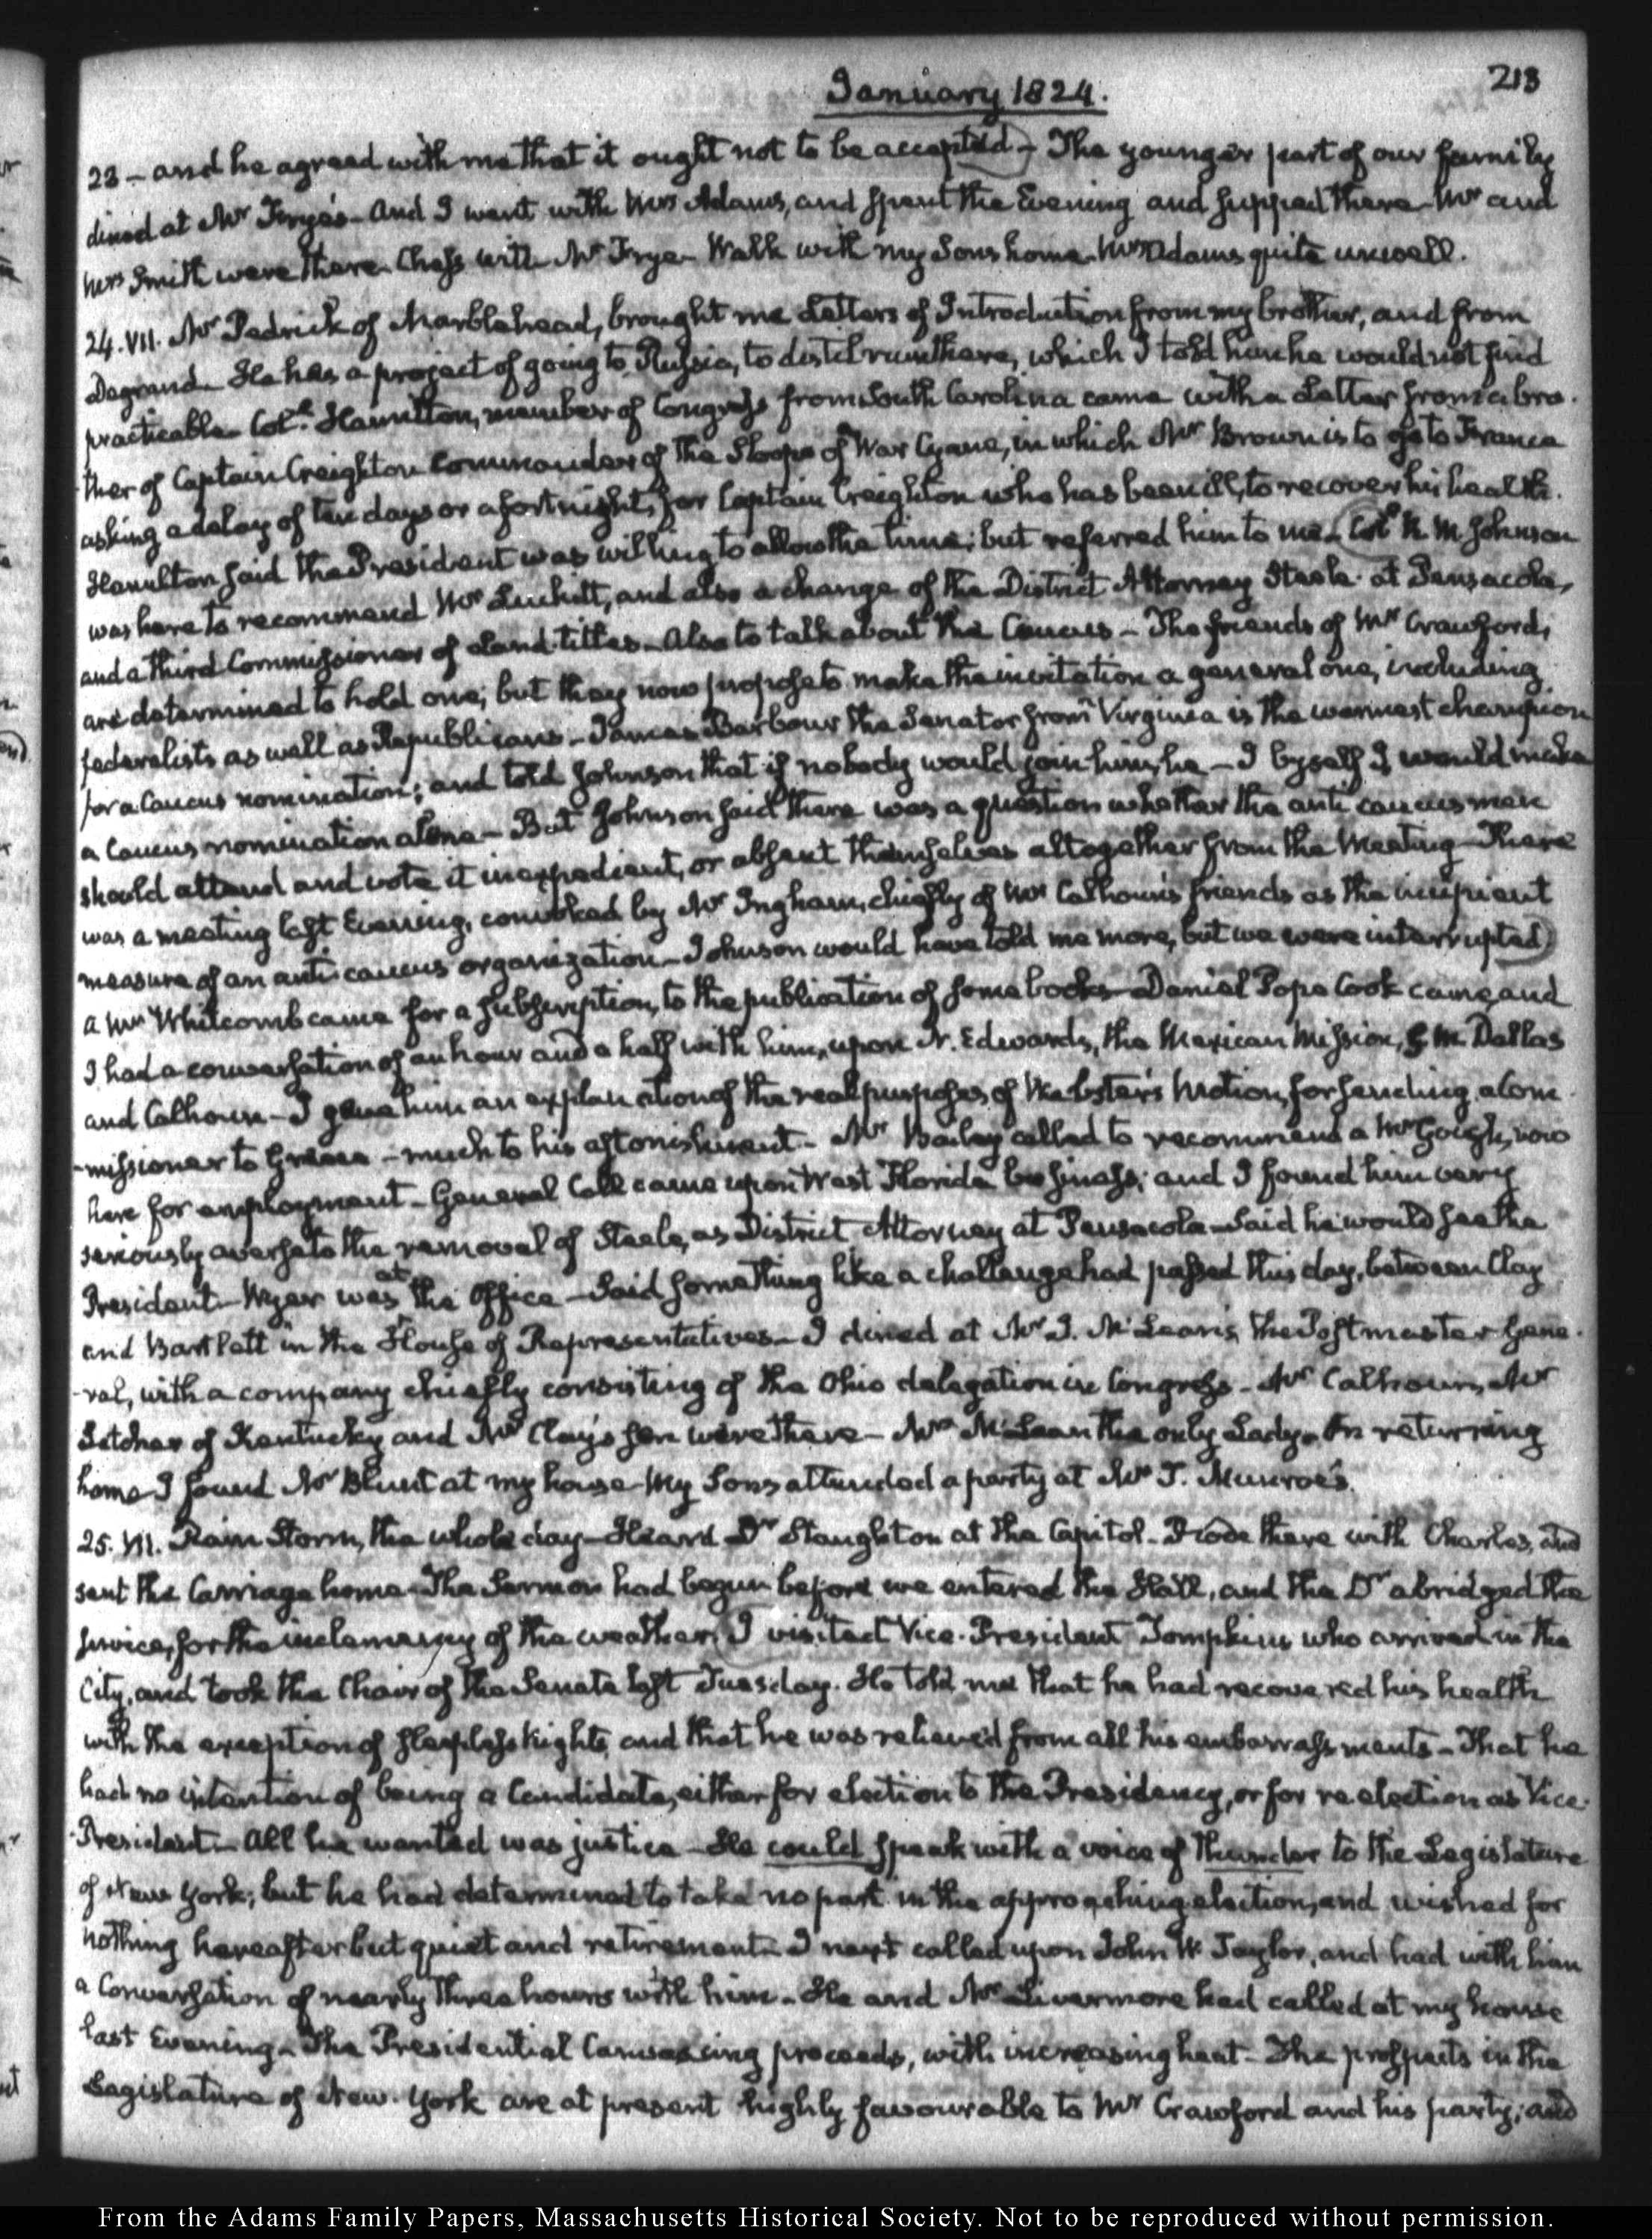 January 1824.
213
23 – and he agreed with me that it ought not to be accepted – The younger part of our family
dined at Mr Frye's – And I went with Mrs Adams, and spent the Evening and supped there – Mr and
Mrs Smith were there – Chess with Mr Frye – Walk with my Sons home – Mrs Adams quite unwell.
24. VII. Mr Pedrick of Marblehead, brought me Letters of Introduction from my brother, and from
Degrand – He has a project of going to Russia, to distil rum there, which I told him he would not find
practicable – Coll. Hamilton, member of Congress from South Carolina came with a Letter from a bro-
-ther of Captain Creighton Commander of the Sloop of War Cyane, in which Mr Brown is to go to France
asking a delay of ten days or a fortnight, for Captain Creighton who has been ill, to recover his health.
Hamilton said the President was willing to allow the time; but referred him to me – Coll R. M. Johnson
was here to recommend Mr Luckett, and also a change of the District Attorney Steele at Pensacola,
and a third Commissioner of Land-titles – Also to talk about the Caucus – The friends of Mr Crawford,
are determined to hold one; but they now propose to make the invitation a general one, including
federalists as well as Republicans – James Barbour the Senator from Virginia is the warmest champion
for a Caucus nomination; and told Johnson that if nobody would join him, he – I by self I would make
a Caucus nomination alone – But Johnson said there was a question whether the anti caucus men
should attend and vote it inexpedient, or absent themselves altogether from the Meeting – There
was a meeting last Evening, convoked by Mr Ingham, chiefly of Mr Calhoun's friends as the incipient
measure of an anti-caucus organization – Johnson would have told me more, but we were interrupted)
A Mr Whitcomb came for a subscription, to the publication of some books – Daniel Pope Cook came, and
I had a conversation of an hour and a half with him, upon N. Edwards, the Mexican Mission, G. M. Dallas
and Calhoun – I gave him an explanation of the real purposes, of Webster's Motion, for sending a Com-
-missioner to Greece – much to his astonishment – Mr Bailey called to recommend a Mr now
here for employment – General Call came upon West Florida business; and I found him very
seriously averse to the removal of Steele, as District Attorney at Pensacola – Said he would see the
President – Wyer was at the Office – Said something like a challenge had passed this day, between Clay
and Bartlett in the House of Representatives – I dined at Mr J. McLean's, the Postmaster Gene-
-ral, with a company chiefly consisting of the Ohio delegation in Congress – Mr Calhoun, Mr
Letcher of Kentucky and Mr Clay's son were there – Mrs McLean the only Lady – On returning
home I found Mr Blunt at my house – My Sons attended a party at Mr T. Munroe's.
25. VII. Rain Storm, the whole day – Heard Dr Staughton at the Capitol – Rode there with Charles, and
sent the Carriage home – The Sermon had begun before we entered the Hall, and the Dr abridged the
service, for the inclemency of the weather. I visited Vice-President Tompkins who arrived in the
City, and took the Chair of the Senate last Tuesday. He told me that he had recovered his health
with the exception of sleepless Nights, and that he was relieved from all his embarrassments – That he
had no intention of being a Candidate, either for election to the Presidency, or for re-election as Vice-
-President – All he wanted was justice – He could speak with a voice of thunder to the Legislature
of New York; but he had determined to take no part in the approaching election, and wished for
nothing hereafter but quiet and retirement – I next called upon John W. Taylor, and had with him
a Conversation of nearly three hours with him – He and Mr Livermore had called at my house
last Evening – The Presidential Canvassing proceeds, with increasing heat – The prospects in the
Legislature of New-York are at present highly favourable to Mr Crawford and his party; and
From the Adams Family Papers, Massachusetts Historical Society. Not to be reproduced without permission.